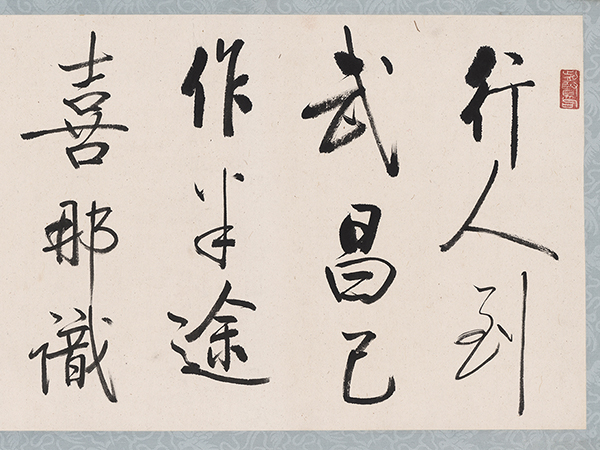 行人到
武昌已
作半途
喜那識